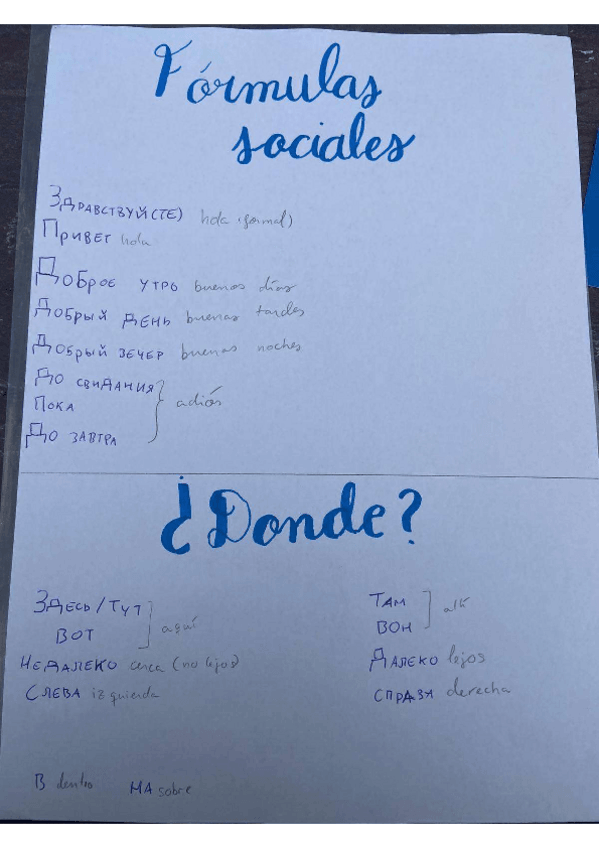 Fórmulas
sociales
Здравствуй(те) hola (formal)
Привет hola
Доброе утро buenos días
Добрый день buenas tardes
Добрый зечер buenas noches
До свидания
Пока
adiós
До завтра
¿Donde?
Здесь/Тут
Вот
aquí
Там
Вон
allí
Недалеко cerca (no lejos)
Далеко lejos
Слева izquierda
спраза derecha
В dentro
МА sobre